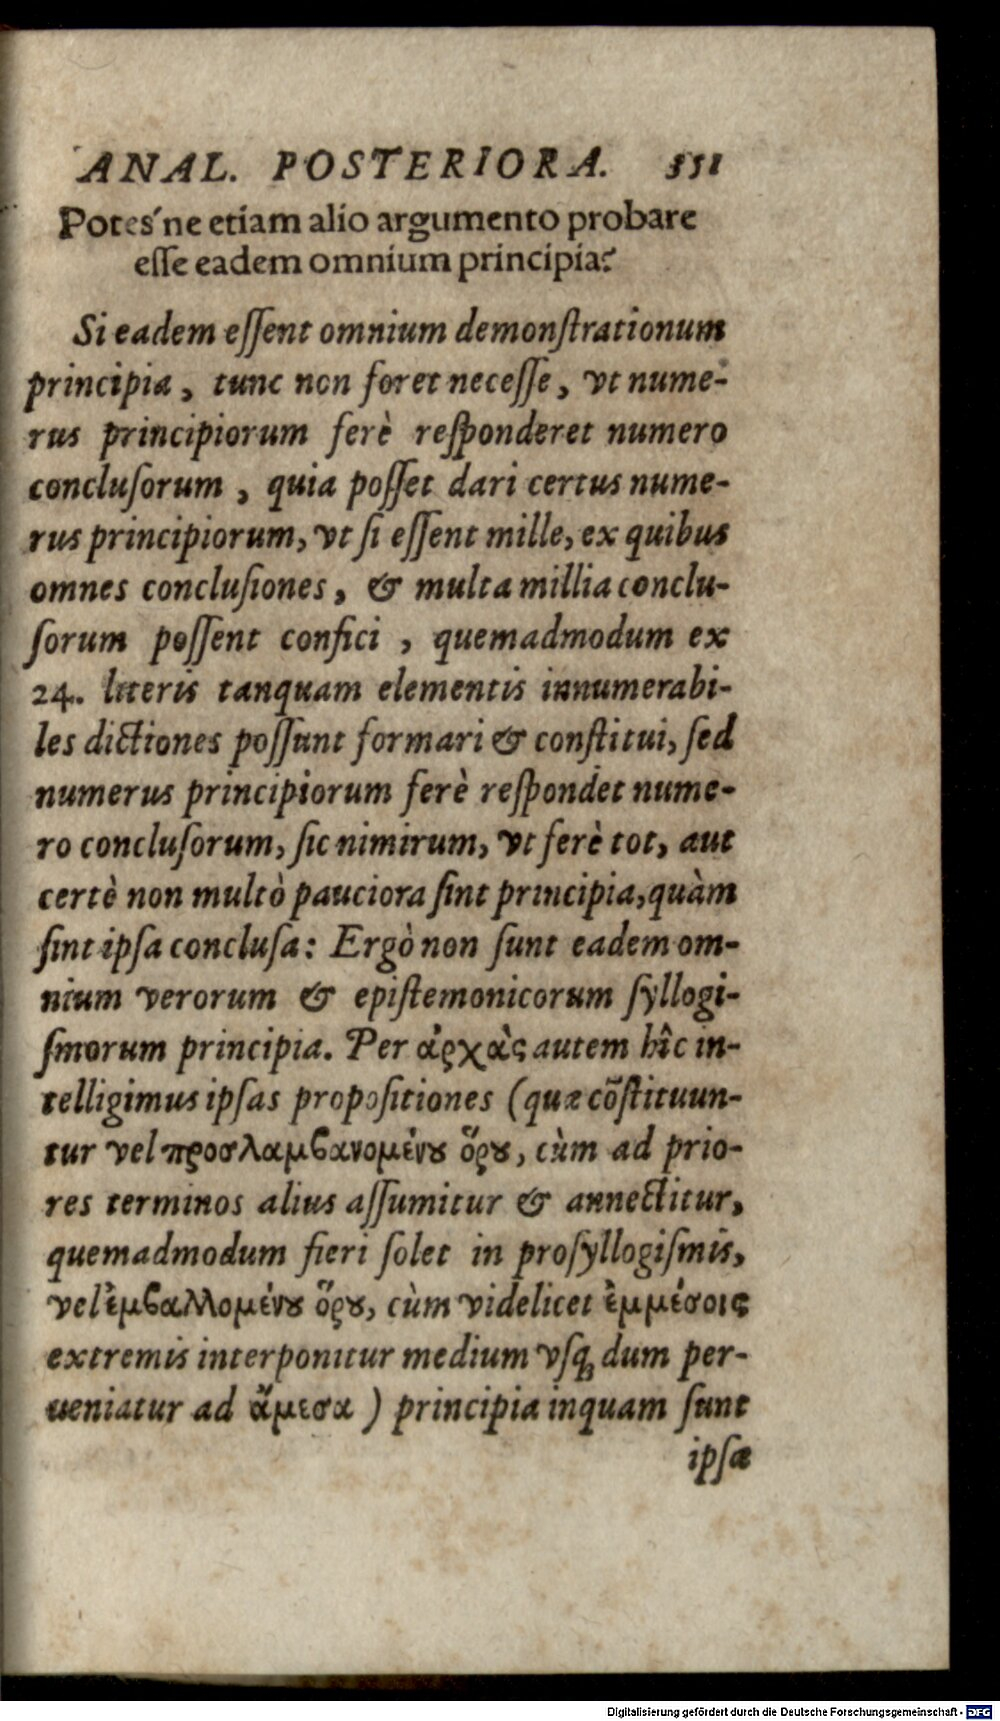 ANAL. POSTERIORA. 551
Potes'ne etiam alio argumento probare
eſſe eadem omnium principia?
Si eadem eſſent omnium demonſtrationum
principia, tunc non foret neceſſe, vt nume-
rus principiorum ferè reſponderet numero
concluſorum, quia poſſet dari certus nume-
rus principiorum, vt ſi eſſent mille, ex quibus
omnes concluſiones, & multa millia conclu-
ſorum poſſent confici, quemadmodum ex
24. literis tanquam elementis innumerabi-
les dictiones poſſunt formari & conſtitui, ſed
numerus principiorum ferè reſpondet nume-
ro concluſorum, ſic nimirum, vt ferè tot, aut
certè non multò pauciora ſint principia, quàm
ſint ipſa concluſa: Ergò non ſunt eadem om-
nium verorum & epiſtemonicorum ſyllogi-
ſmorum principia. Per ἀρχὰς autem hîc in-
telligimus ipſas propoſitiones (quæ cōſtituun-
tur vel προσλαμϐανομένȣ ὅρȣ, cùm ad prio-
res terminos alius aſſumitur & annectitur,
quemadmodum fieri ſolet in proſyllogiſmis,
vel ἐμϐαλλομένȣ ὅρȣ, cùm videlicet ἐμμέσοις
extremis interponitur medium vſq; dum per-
ueniatur ad ἄμεσα) principia inquam ſunt
ipſæ
Digitalisierung gefördert durch die Deutsche Forschungsgemeinschaft - DFG